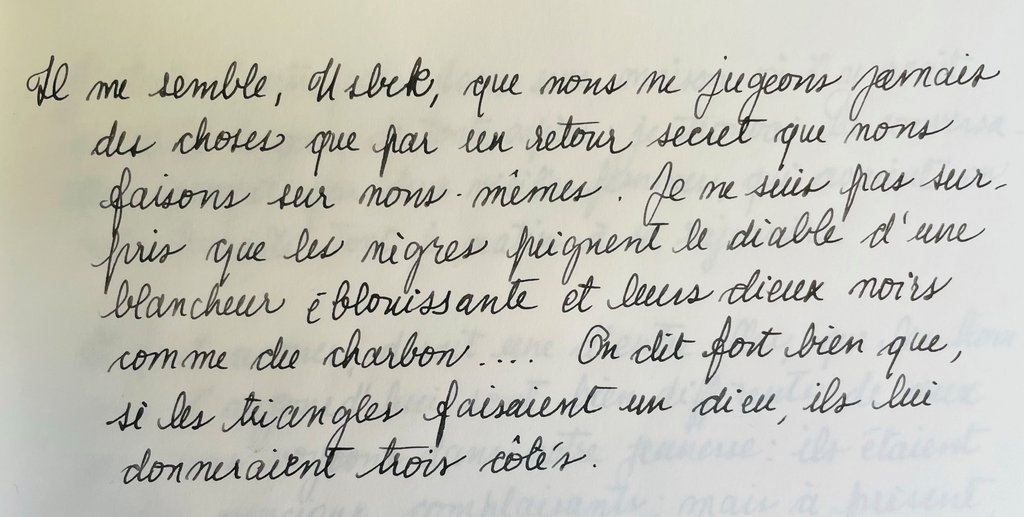 Il me semble, Usbek, que nous ne jugeons jamais
des choses que par un retour secret que nous
faisons sur nous-mêmes. Je ne suis pas sur-
pris que les nègres peignent le diable d'une
blancheur éblouissante et leurs dieux noirs
comme du charbon.... On dit fort bien que,
si les triangles faisaient un dieu, ils lui
donneraient trois côtés.